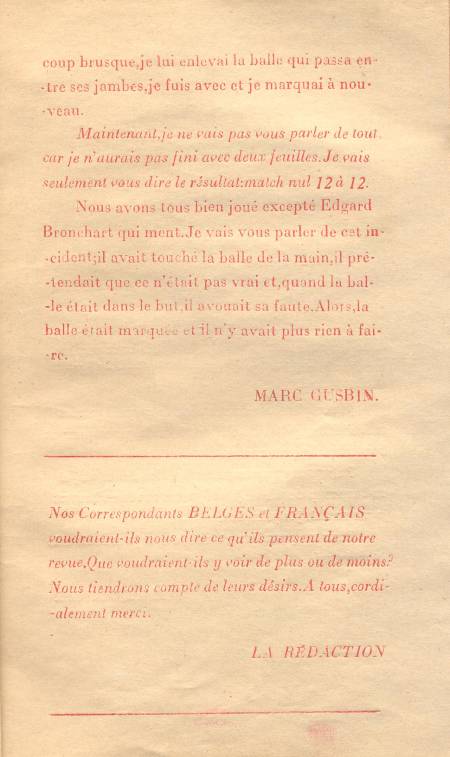 coup brusque,je lui enlevai la balle qui passa en-
-tre ses jambes,je fuis avec et je marquai à nou-
-veau.
Maintenant,je ne vais pas vous parler de tout.
car je n'aurais pas fini avec deux feuilles.Je vais
seulement vous dire le résultat:match nul 12 à 12.
Nous avons tous bien joué excepté Edgard
Bronchart qui ment.Je vais vous parler de cet in-
-cident;il avait touché la balle de la main,il pré-
-tendait que ce n'était pas vrai et,quand la bal-
-le était dans le but,il avouait sa faute.Alors,la
balle était marquée et il n'y avait plus rien à fai-
-re.
MARC GUSBIN.
Nos Correspondants BELGES et FRANÇAIS
voudraient-ils nous dire ce qu'ils pensent de notre
revue.Que voudraient-ils y voir de plus ou de moins?
Nous tiendrons compte de leurs désirs.A tous,cordi-
-alement merci.
LA RÉDACTION